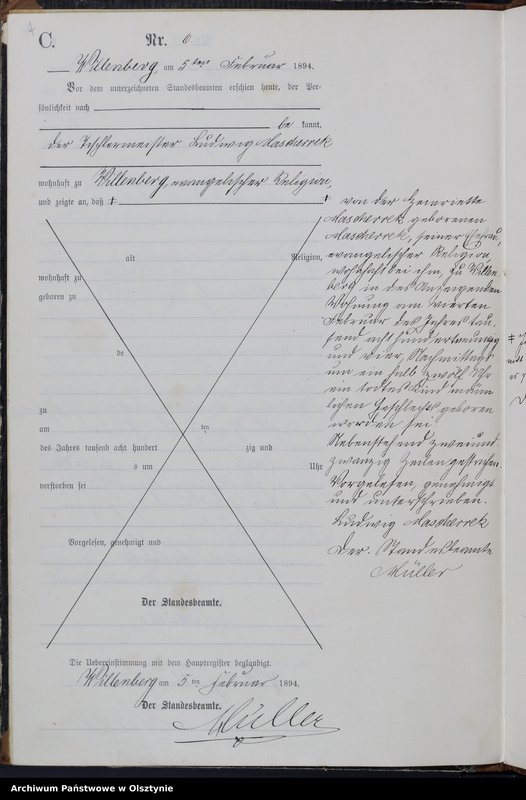 C.
Nr. 6
Willenberg, am 5ten Februar 1894.
Vor dem unterzeichneten Standesbeamten erschien heute, der Per-
sönlichkeit nach
be kannt,
der Tischlermeister Ludwig Mascherrek
wohnhaft zu Willenberg, evangelischer Religion,
und zeigte an, daß
von der Henriette
Mascherrek geborenen
Mascherrek, seiner Ehefrau,
evangelischer Religion,
wohnhaft bei ihm, zu Willen-
berg in des Anzeigenden
Wohnung am vierten
Februar des Jahres tau-
send acht hundert neunzig
und vier, Nachmittags
um ein halb zwölf Uhr
ein todtes Kind männ-
lichen Geschlechts geboren
worden sei.
Nebenstehend zweiund
zwanzig Zeilen gestrichen.
Vorgelesen, genehmigt
und unterschrieben.
Ludwig Mascherrek
Der Standesbeamte
Müller
alt Religion,
wohnhaft zu
geboren zu
de
zu
am ten
des Jahres tausend acht hundert zig und
s um Uhr
verstorben sei
Vorgelesen, genehmigt und
Der Standesbeamte.
Die Uebereinstimmung mit dem Hauptregister beglaubigt.
Willenberg am 5ten Februar 1894.
Der Standesbeamte.
Müller
Archiwum Państwowe w Olsztynie